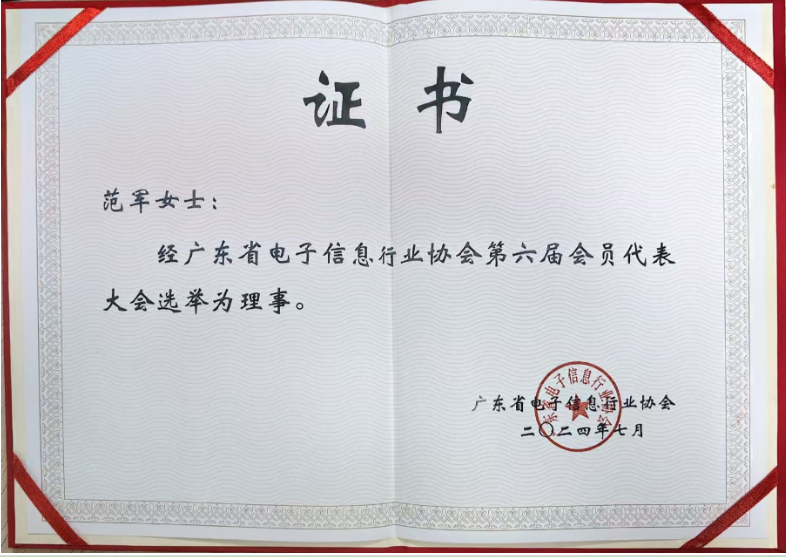 证书
范军女士：
经广东省电子信息行业协会第六届会员代表
大会选举为理事。
广东省电子信息行业协会
二〇二四年七月
东省电子信息行业协会